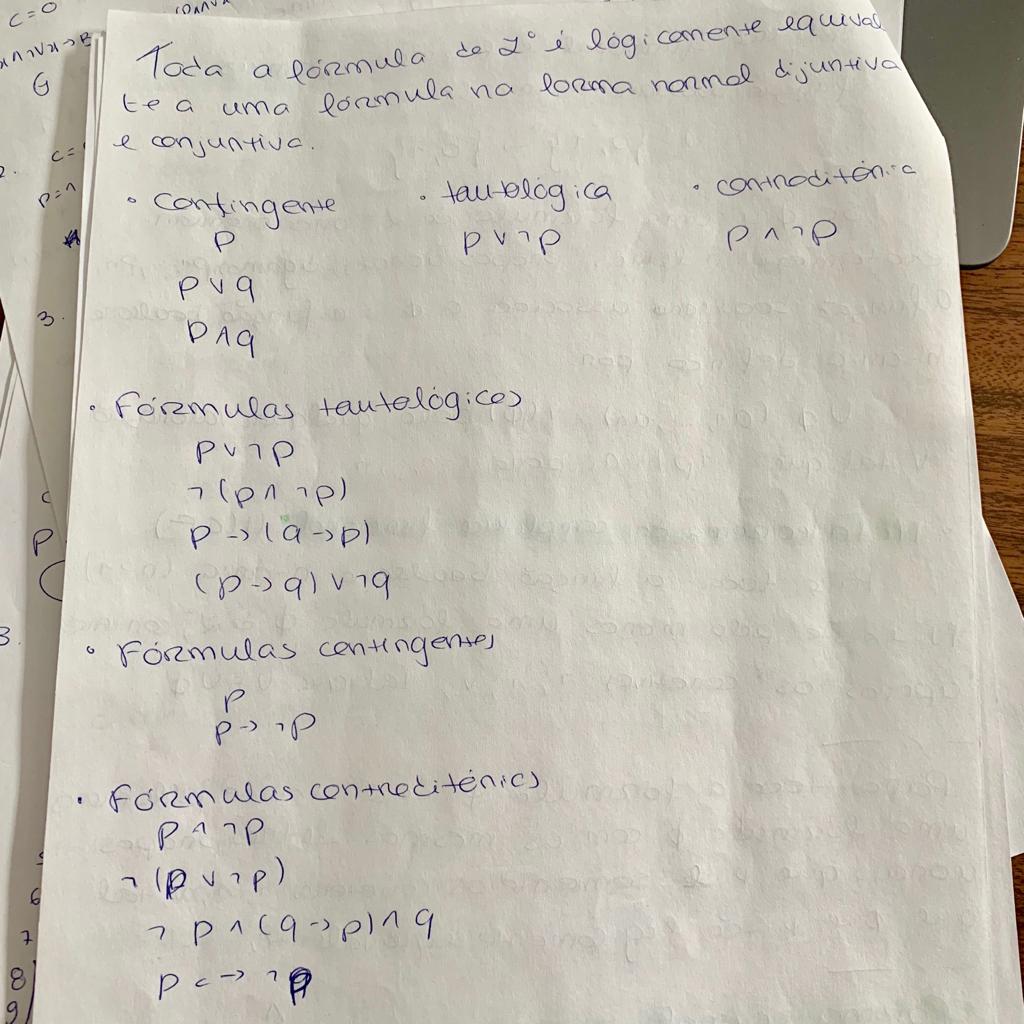 C=0
Toda a fórmula de L° é lógicamente equival
te a uma fórmula na forma normal dijuntiva
e conjuntiva.
• contingente • tautelógica • contraditória
p p ∨ ¬p p ∧ ¬p
p ∨ q
p ∧ q
• Fórmulas tautelógicas
p ∨ ¬p
¬(p ∧ ¬p)
p → (q → p)
(p → q) ∨ ¬q
• Fórmulas contingentes
p
p → ¬p
• Fórmulas contraditórias
p ∧ ¬p
¬(p ∨ ¬p)
¬p ∧ (q → p) ∧ q
p <-> ¬p
2.
C=
p=1
3.
C
P
(
3.
5
6
7
8)
9)